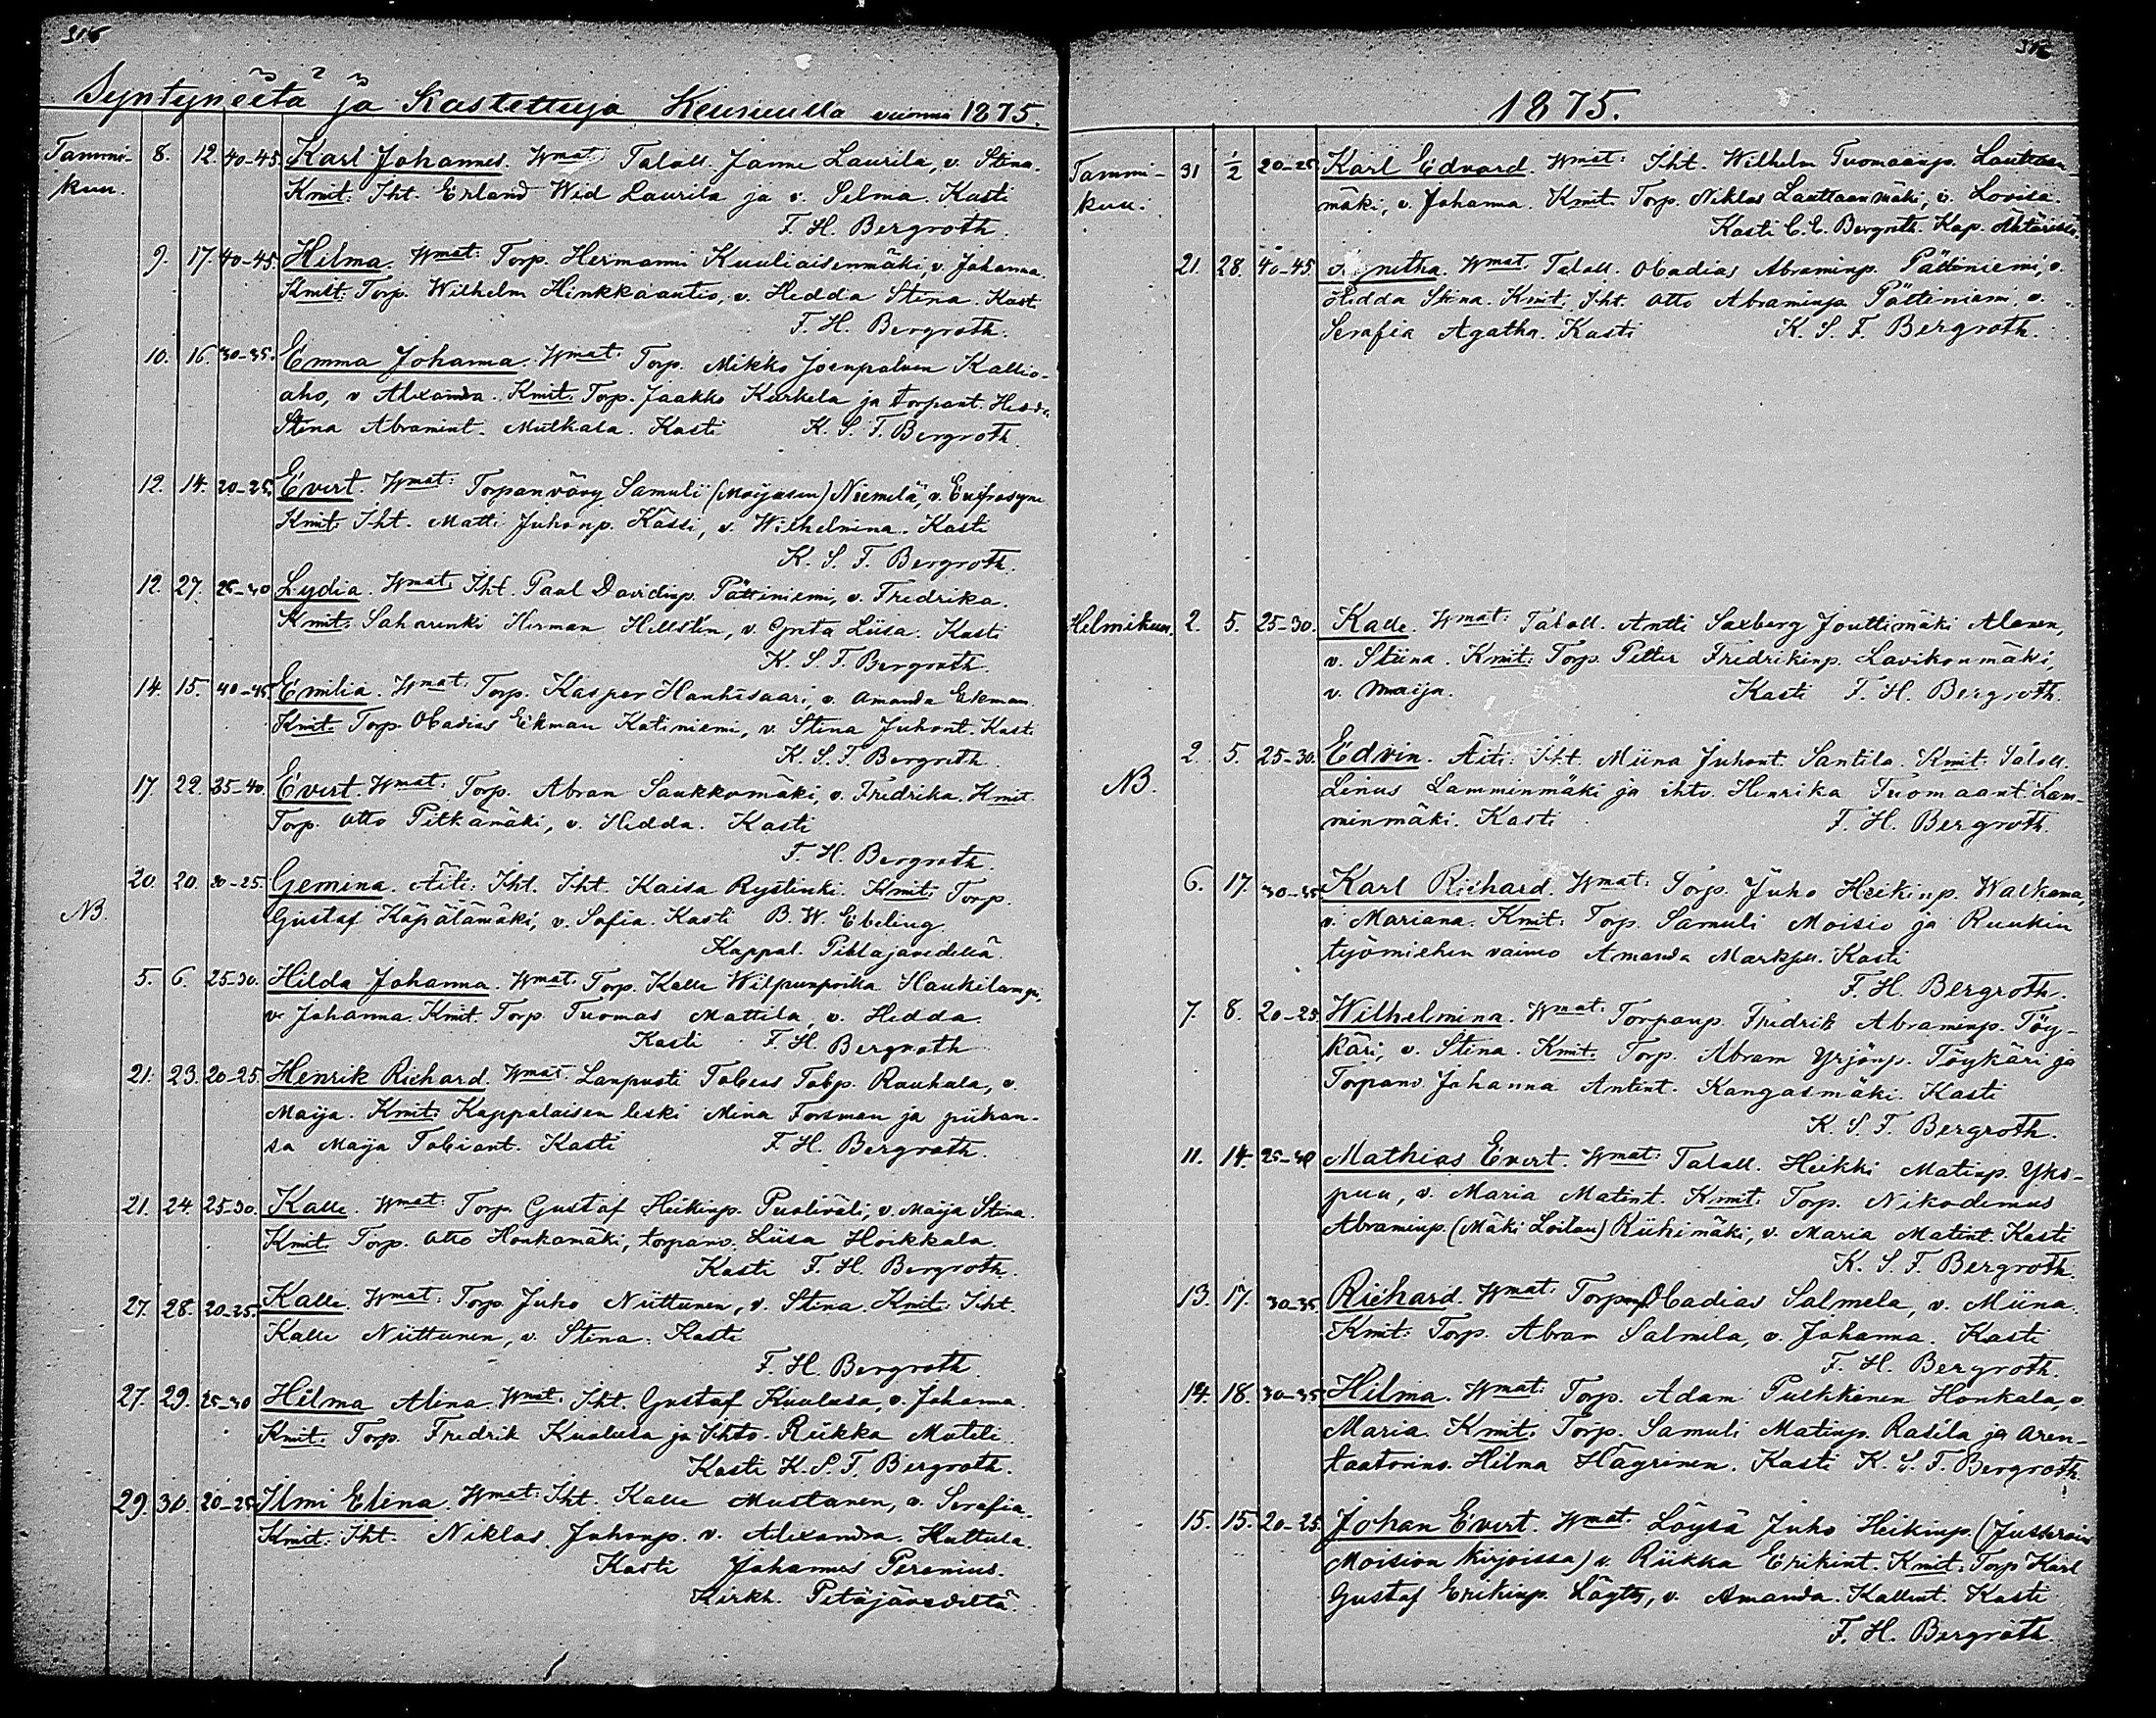 316
Syntyneitä ja Kastettuja Keuruulla vuonna 1875.
Tammi-
kuu.
8. 12. 40-45. Karl Johannes. Wmat: Taloll. Janne Laurila, v. Stina.
Kmit: Iht. Erland Wid Laurila ja v. Selma. Kasti
F. H. Bergroth.
9. 17. 40-45. Hilma. Wmat: Torp. Hermanni Kuuliaisenmäki, v. Johanna.
Kmit: Torp. Wilhelm Hinkkaantio, v. Hedda Stina. Kast
F. H. Bergroth.
10. 16. 30-35. Emma Johanna. Wmat: Torp. Mikko Joenpolven Kallio-
aho, v. Alexandra. Kmit. Torp. Jaakko Kurkela ja torpant. Hedda
Stina Abramint. Mulkala. Kasti K. S. F. Bergroth.
12. 14. 20-25. Evert. Wmat: Torpanvävy Samuli (Maijasen) Niemelä, v. Eufrosyne
Kmit: Iht. Matti Juhonp. Kässi, v. Wilhelmina. Kasti
K. S. F. Bergroth.
12. 27. 25-30 Lydia. Wmat: Iht. Paul Davidinp. Pättiniemi, v. Fredrika.
Kmit: Saharinki Herman Hellstén, v. Greta Liisa. Kasti
K. S. F. Bergroth.
14. 15. 40-45 Emilia. Wmat: Torp. Kasper Hanhisaari, v. Amanda Ekman.
Kmit: Torp. Obadias Ekman Katiniemi, v. Stina Juhont. Kasti
K. S. F. Bergroth.
17. 22. 35-40. Evert. Wmat: Torp. Abram Saukkomäki, v. Fredrika. Kmit.
Torp. Otto Pitkämäki, v. Hedda. Kasti
F. H. Bergroth.
NB.
20. 20. 20-25. Gemina. Äiti: Iht. Iht. Kaisa Rystinki. Kmit: Torp.
Gustaf Käpälämäki, v. Sofia. Kasti B. W. Ebeling
Kappal. Pihlajavedellä.
5. 6. 25-30. Hilda Johanna. Wmat: Torp. Kalle Wilpunpoika Haukilampi,
v. Johanna. Kmit. Torp. Tuomas Mattila, v. Hedda.
Kasti F. H. Bergroth
21. 23. 20-25. Henrik Richard. Wmat: Lampuoti Tobias Tobp. Rauhala, v.
Maija. Kmit: Kappalaisen leski Mina Forsman ja piikan-
sa Maija Tobiant. Kasti F. H. Bergroth.
21. 24. 25-30. Kalle. Wmat: Torp. Gustaf Heikinp. Puoliväli, v. Maija Stina.
Kmit. Torp. Otto Honkamäki, torpanv. Liisa Hoikkala.
Kasti F. H. Bergroth.
27. 28. 20-25. Kalle. Wmat: Torp. Juho Niittunen, v. Stina. Kmit: Iht.
Kalle Niittunen, v. Stina. Kasti
F. H. Bergroth.
27. 29. 25-30 Hilma Alina. Wmat. Iht. Gustaf Kualusa, v. Johanna.
Kmit: Torp. Fredrik Kualusa ja Ihto. Riikka Matili.
Kasti K. S. F. Bergroth.
29. 30. 20-25 Ilmi Elina. Wmat: Iht. Kalle Mustanen, v. Serafia.
Kmit: Iht. Niklas Juhonp. v. Alexandra Huttula.
Kasti Johannes Perenius.
Kirkh. Petäjävedeltä.
316
1875.
Tammi-
kuu.
31 1/2 20-25 Karl Edvard. Wmat: Iht. Wilhelm Tuomaanp. Lauttaan-
mäki, v. Johanna. Kmit. Torp. Niklas Lauttaanmäki, v. Lovisa.
Kasti C. E. Bergroth. Kap. Ähtärissä.
21. 28. 40-45. Agnetha. Wmat. Taloll. Obadias Abraminp. Pättiniemi, v.
Hedda Stina. Kmit. Iht. Otto Abraminp. Pättiniemi, v.
Serafia Agatha. Kasti K. S. F. Bergroth.
Helmikuu. 2. 5. 25-30. Kalle. Wmat: Taloll. Antti Saxberg Jouttimäki Alanen,
v. Stiina. Kmit: Torp. Petter Fredrikinp. Lavikonmäki,
v. Maija. Kasti F. H. Bergroth.
NB.
2. 5. 25-30. Edvin. Äiti: Iht. Miina Juhont. Santila. Kmit. Taloll.
Linus Lamminmäki ja ihtv. Henrika Tuomaant. Lam-
minmäki. Kasti F. H. Bergroth.
6. 17. 30-35 Karl Richard. Wmat: Torp. Juho Heikinp. Walkama,
v. Mariana. Kmit: Torp. Samuli Moisio ja Ruukin
työmiehen vaimo Amanda Markjen. Kasti
F. H. Bergroth.
7. 8. 20-25 Wilhelmina. Wmat: Torpanp. Fredrik Abraminp. Töy-
käri, v. Stina. Kmit. Torp. Abram Yrjönp. Töykäri ja
Torpanv. Johanna Antint. Kangasmäki. Kasti
K. S. F. Bergroth.
11. 14. 25-30 Mathias Evert. Wmat: Taloll. Heikki Matinp. Yks-
puu, v. Maria Matint. Kmit: Torp. Nikodemus
Abraminp. (Mäki Loilan) Riihimäki, v. Maria Matint. Kasti
K. S. F. Bergroth.
13. 17. 30-35 Richard. Wmat: Torp. Obadias Salmela, v. Miina.
Kmit: Torp. Abram Salmela, v. Johanna. Kasti
F. H. Bergroth.
14. 18. 30-35 Hilma. Wmat: Torp. Adam Pulkkinen Honkala, v.
Maria. Kmit: Torp. Samuli Matinp. Rasila ja aren-
taatorinv. Hilma Häyrinen. Kasti K. S. F. Bergroth.
15. 15. 20-25. Johan Evert. Wmat: Löysä Juho Heikinp. (Jusseroin
Moision kirjoissa) v. Riikka Erikint. Kmit: Torp Karl
Gustaf Erikinp. Lägty, v. Amanda Kallent. Kasti
F. H. Bergroth.